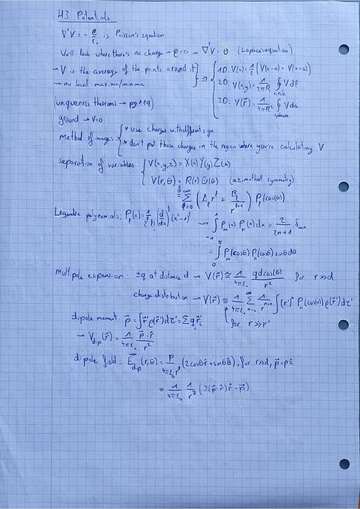 4.3 Potentials
∇²V = -ρ/ε₀ is Poisson's equation
We'll look where there's no charge → ρ=0 → ∇²V = 0 (Laplace's equation)
→ V is the average of the points around it
→ no local maxima/minima
1D: V(x) = ½ (V(x-a) + V(x+a))
2D: V(x,y) = 1/2πR ∮ V dl
circle
3D: V(r⃗) = 1/4πR² ∮ V da
sphere
(uniqueness theorems → pg 119)
ground → V=0
method of images * use charges with different sign
* don't put these charges in the region where you're calculating V
separation of variables V(x,y,z) = X(x) Y(y) Z(z)
V(r,θ) = R(r) Θ(θ) (azimuthal symmetry)
= Σ (A_l r^l + B_l/r^(l+1)) P_l(cosθ)
Legendre polynomials: P_l(x) = 1/(2^l l!) (d/dx)^l (x²-1)^l
→ ∫ P_n(x) P_m(x) dx = 2/(2n+1) δ_nm
= ∫ P_n(cosθ) P_m(cosθ) sinθ dθ
multipole expansion: ±q at distance d → V(r⃗) ≅ 1/4πε₀ qd cos(θ)/r² for r≫d
charge distribution → V(r⃗) = 1/4πε₀ Σ 1/r^(n+1) ∫ (r')^n P_n(cosα) ρ(r⃗') dτ'
for r≫r'
dipole moment p⃗ = ∫ r⃗' ρ(r⃗') dτ' = Σ q r⃗'
→ V_dip(r⃗) = 1/4πε₀ p⃗·r̂/r²
dipole field: E⃗_dip(r,θ) = p/4πε₀r³ (2cosθ r̂ + sinθ θ̂), for r≫d, p⃗=pẑ
= 1/4πε₀ 1/r³ (3(p⃗·r̂)r̂ - p⃗)